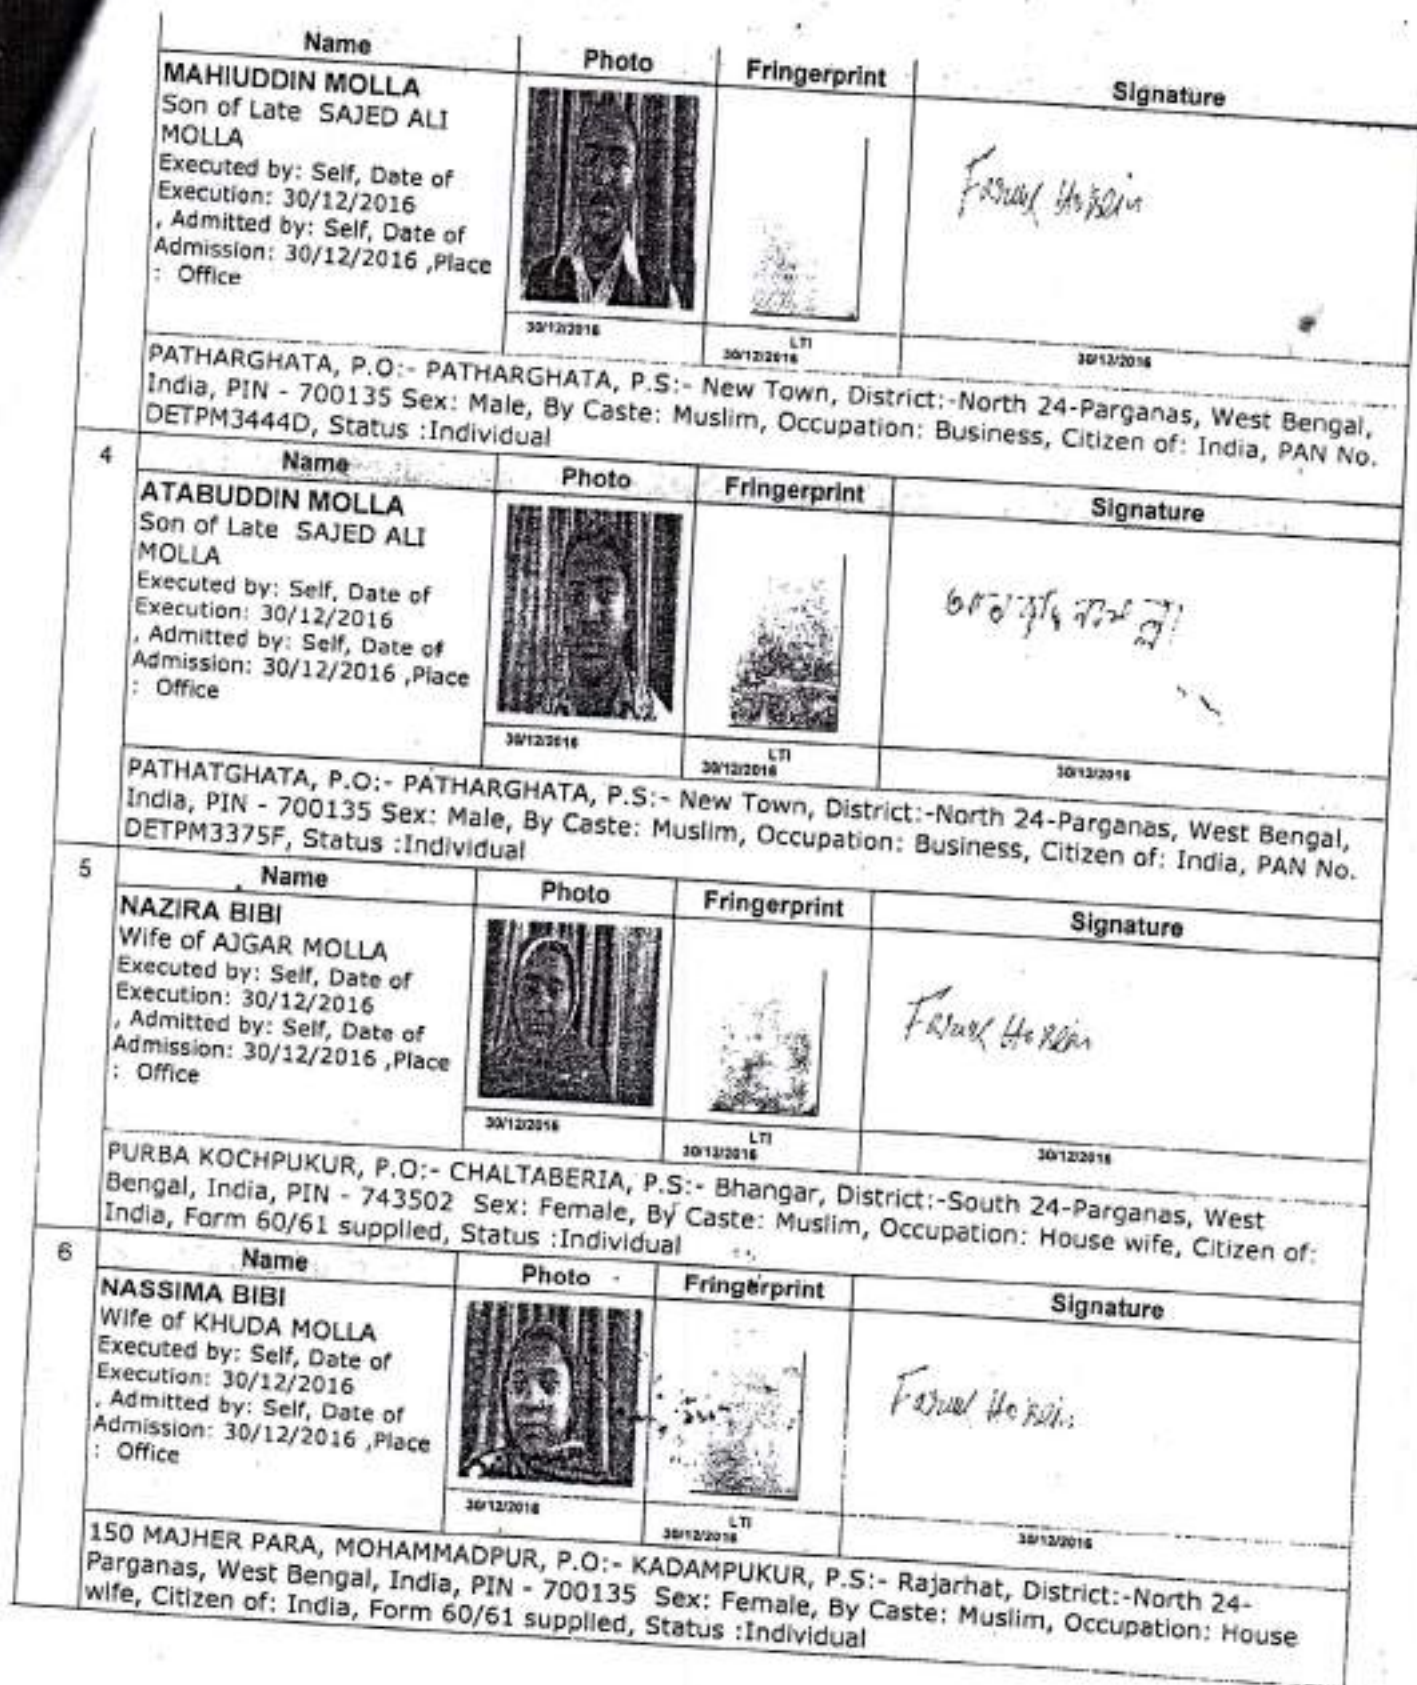 Name Photo Fringerprint Signature
MAHIUDDIN MOLLA
Son of Late SAJED ALI
MOLLA
Executed by: Self, Date of
Execution: 30/12/2016
, Admitted by: Self, Date of
Admission: 30/12/2016 ,Place
: Office
Faruk Hossein
30/12/2016 LTI
30/12/2016 30/12/2016
PATHARGHATA, P.O:- PATHARGHATA, P.S:- New Town, District:-North 24-Parganas, West Bengal,
India, PIN - 700135 Sex: Male, By Caste: Muslim, Occupation: Business, Citizen of: India, PAN No.
DETPM3444D, Status :Individual
4 Name Photo Fringerprint Signature
ATABUDDIN MOLLA
Son of Late SAJED ALI
MOLLA
Executed by: Self, Date of
Execution: 30/12/2016
, Admitted by: Self, Date of
Admission: 30/12/2016 ,Place
: Office
30/12/2016 LTI
30/12/2016 30/12/2016
PATHATGHATA, P.O:- PATHARGHATA, P.S:- New Town, District:-North 24-Parganas, West Bengal,
India, PIN - 700135 Sex: Male, By Caste: Muslim, Occupation: Business, Citizen of: India, PAN No.
DETPM3375F, Status :Individual
5 Name Photo Fringerprint Signature
NAZIRA BIBI
Wife of AJGAR MOLLA
Executed by: Self, Date of
Execution: 30/12/2016
, Admitted by: Self, Date of
Admission: 30/12/2016 ,Place
: Office
Faruk Hossein
30/12/2016 LTI
30/12/2016 30/12/2016
PURBA KOCHPUKUR, P.O:- CHALTABERIA, P.S:- Bhangar, District:-South 24-Parganas, West
Bengal, India, PIN - 743502 Sex: Female, By Caste: Muslim, Occupation: House wife, Citizen of:
India, Form 60/61 supplied, Status :Individual
6 Name Photo Fringerprint Signature
NASSIMA BIBI
Wife of KHUDA MOLLA
Executed by: Self, Date of
Execution: 30/12/2016
, Admitted by: Self, Date of
Admission: 30/12/2016 ,Place
: Office
Faruk Hossein
30/12/2016 LTI
30/12/2016 30/12/2016
150 MAJHER PARA, MOHAMMADPUR, P.O:- KADAMPUKUR, P.S:- Rajarhat, District:-North 24-
Parganas, West Bengal, India, PIN - 700135 Sex: Female, By Caste: Muslim, Occupation: House
wife, Citizen of: India, Form 60/61 supplied, Status :Individual